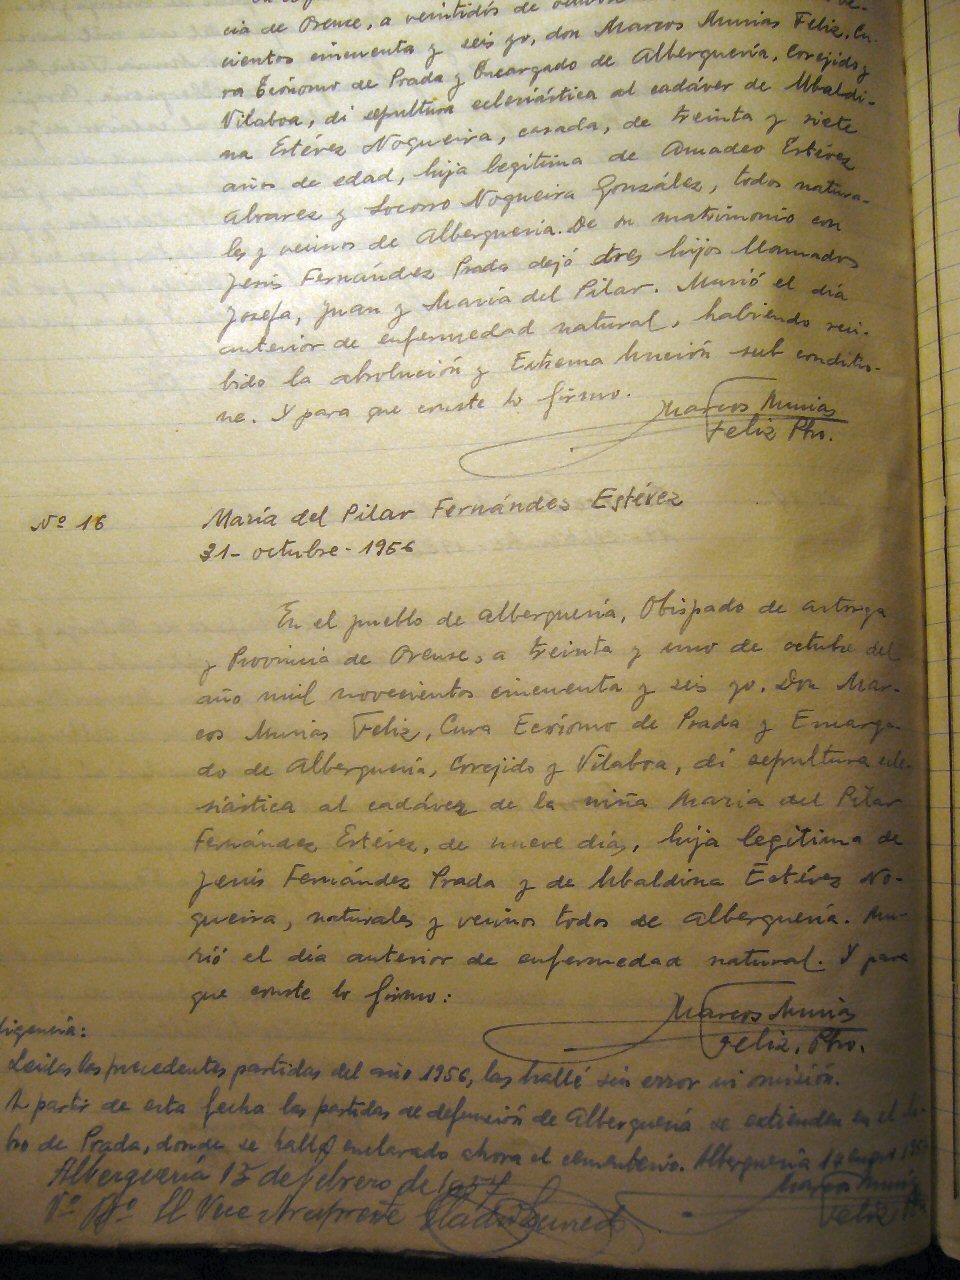 cia de Orense, a veintidós de octubre
cientos cincuenta y seis yo, don Marcos Munias Feliz, Cu-
ra Ecónomo de Prada y Encargado de Alberguería, Corejido y
Vilaboa, di sepultura eclesiástica al cadáver de Ubaldi-
na Estévez Nogueira, casada, de treinta y siete
años de edad, hija legítima de Amadeo Estévez
Alvarez y Socorro Nogueira González, todos natura-
les y vecinos de Alberguería. De su matrimonio con
Jesús Fernández Prada dejó tres hijos llamados
Josefa, Juan y María del Pilar. Murió el día
anterior de enfermedad natural, habiendo reci-
bido la absolución y Extrema Unción sub conditio-
ne. Y para que conste lo firmo.
Marcos Munias
Feliz Pbro.
Nº 16
María del Pilar Fernández Estévez
31- octubre - 1956
En el pueblo de Alberguería, Obispado de Astorga
y Provincia de Orense, a treinta y uno de octubre del
año mil novecientos cincuenta y seis yo, Don Mar-
cos Munias Feliz, Cura Ecónomo de Prada y Encarga-
do de Alberguería, Correjido y Vilaboa, di sepultura ecle-
siástica al cadávez de la niña María del Pilar
Fernández Estévez, de nueve días, hija legítima de
Jesús Fernández Prada y de Ubaldina Estévez No-
gueira, naturales y vecinos todos de Alberguería. Mu-
rió el día anterior de enfermedad natural. Y para
que conste lo firmo:
Marcos Munias
Feliz, Pbro.
ligencia:
Leídas las precedentes partidas del año 1956, las hallé sin error ni omisión.
A partir de esta fecha las partidas de defunción de Alberguería se extienden en el li-
bro de Prada, donde se halla enclavado ahora el cementerio. Alberguería 1
Marcos Munias
Feliz
Alberguería 17 de febrero de 1957
Vº Bº El Vice Arcipreste